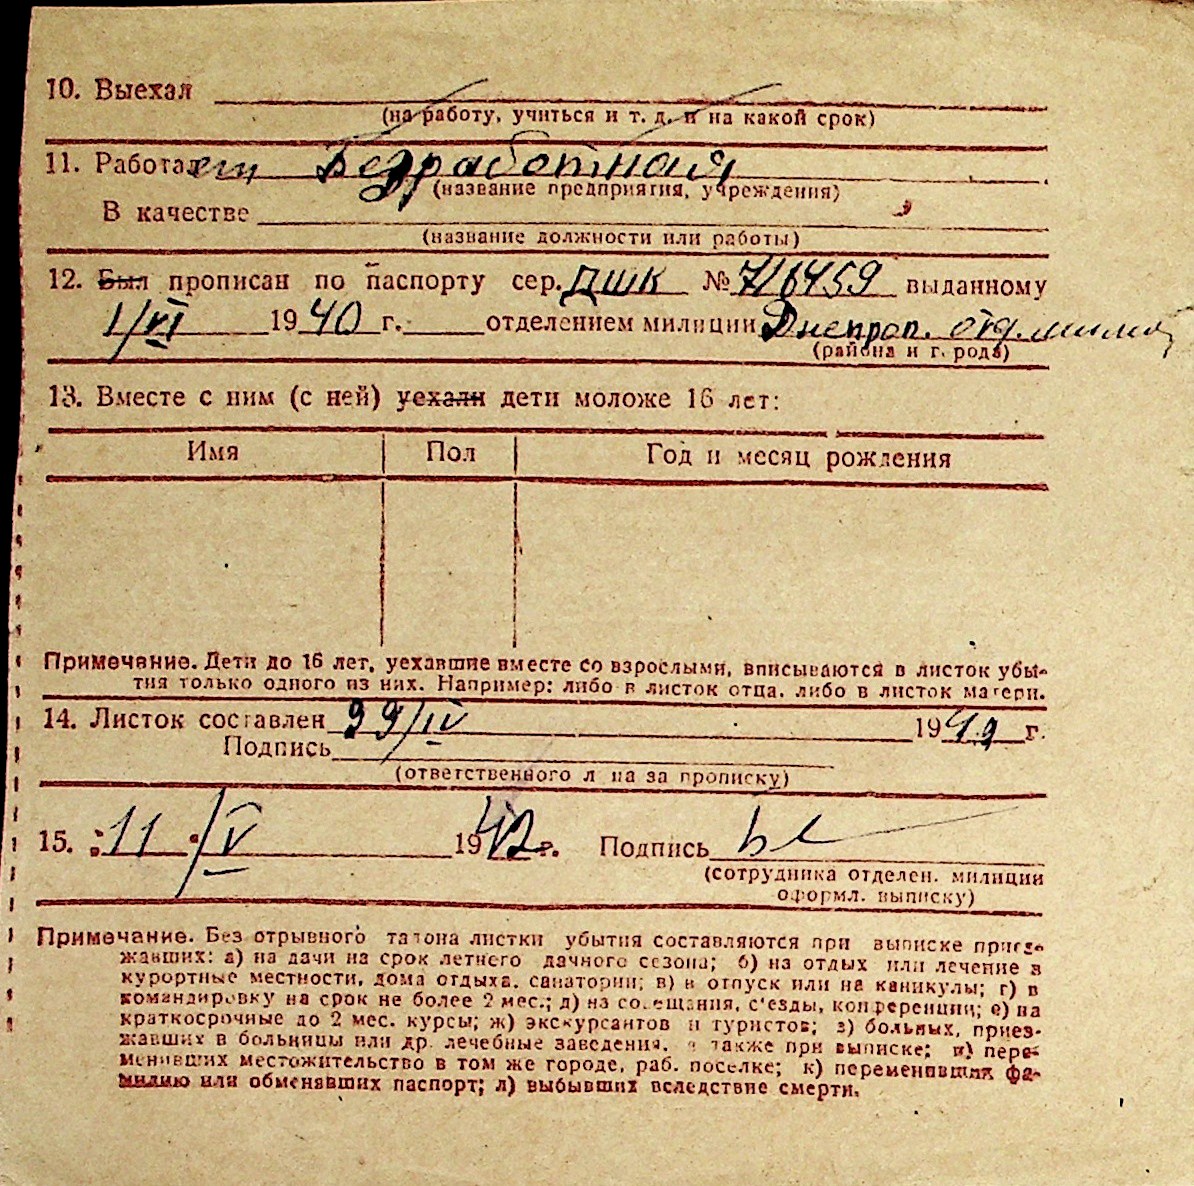 10. Выехал
(на работу, учиться и т. д. и на какой срок)
11. Работает Безработная
(название предприятия, учреждения)
В качестве
(название должности или работы)
12. Был прописан по паспорту сер. ДШК № 716459 выданному
1/VI 1940 г. отделением милиции Днепроп. отд. милиц
(района и города)
13. Вместе с ним (с ней) уехали дети моложе 16 лет:
Имя Пол Год и месяц рождения
Примечание. Дети до 16 лет, уехавшие вместе со взрослыми, вписываются в листок убы-
тия только одного из них. Например: либо в листок отца, либо в листок матери.
14. Листок составлен /IV 1942 г.
Подпись
(ответственного лица за прописку)
15. "11" /V 1942 г. Подпись
(сотрудника отделен. милиции
оформл. выписку)
Примечание. Без отрывного талона листки убытия составляются при выписке приез-
жавших: а) на дачи на срок летнего дачного сезона; б) на отдых или лечение в
курортные местности, дома отдыха, санатории; в) в отпуск или на каникулы; г) в
командировку на срок не более 2 мес.; д) на совещания, с'езды, конференции; е) на
краткосрочные до 2 мес. курсы; ж) экскурсантов и туристов; з) больных, приез-
жавших в больницы или др. лечебные заведения, а также при выписке; и) пере-
менивших местожительство в том же городе, раб. поселке; к) переменивших фа-
милию или обменявших паспорт; л) выбывших вследствие смерти.